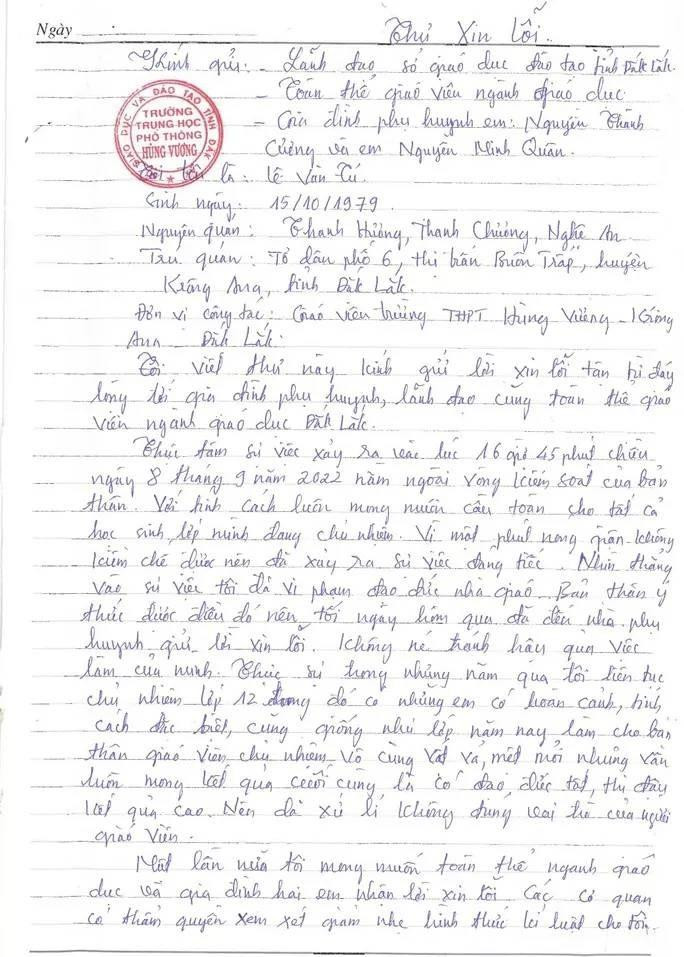 Ngày
Thư Xin lỗi.
Kính gửi: - Lãnh đạo sở giáo dục đào tạo tỉnh Đăk Lăk.
- Toàn thể giáo viên ngành giáo dục
- Gia đình phụ huynh em: Nguyễn Thành
Cường và em Nguyễn Minh Quân.
SỞ GIÁO DỤC VÀ ĐÀO TẠO TỈNH ĐĂK
TRƯỜNG
TRUNG HỌC
PHỔ THÔNG
HÙNG VƯƠNG
Tôi tên là: Lê Văn Tú
Sinh ngày: 15/10/1979.
Nguyên quán: Thanh Hưởng, Thanh Chương, Nghệ An
Trú quán: Tổ dân phố 6, thị trấn Buôn Trấp, huyện
Krông Ana, tỉnh Đăk Lăk.
Đơn vị công tác: Giáo viên trường THPT Hùng Vương - Krông
Ana - Đăk Lăk.
Tôi viết thư này kính gửi lời xin lỗi tận từ đáy
lòng tới gia đình phụ huynh, lãnh đạo cùng toàn thể giáo
viên ngành giáo dục Đăk Lăk.
Thực tâm sự việc xảy ra vào lúc 16 giờ 45 phút chiều
ngày 8 tháng 9 năm 2022 nằm ngoài vòng kiểm soát của bản
thân. Với tính cách luôn mong muốn cầu toàn cho tất cả
học sinh, lớp mình đang chủ nhiệm. Vì một phút nóng giận không
kiềm chế được nên đã xảy ra sự việc đáng tiếc. Nhìn thẳng
vào sự việc tôi đã vi phạm đạo đức nhà giáo. Bản thân ý
thức được điều đó nên tối ngày hôm qua đã đến nhà phụ
huynh gửi lời xin lỗi. Không né tránh hậu quả việc
làm của mình. Thực sự trong những năm qua tôi liên tục
chủ nhiệm lớp 12 trong đó có những em có hoàn cảnh, tính
cách đặc biệt, cũng giống như lớp năm nay làm cho bản
thân giáo viên chủ nhiệm vô cùng vất vả, mệt mỏi nhưng vẫn
luôn mong kết quả cuối cùng là có đạo đức tốt, thi đậu
kết quả cao. Nên đã xử lí không đúng vai trò của người
giáo viên.
Một lần nữa tôi mong muốn toàn thể ngành giáo
dục và gia đình hai em nhận lời xin lỗi. Các cơ quan
có thẩm quyền xem xét giảm nhẹ hình thức kỉ luật cho tôi.